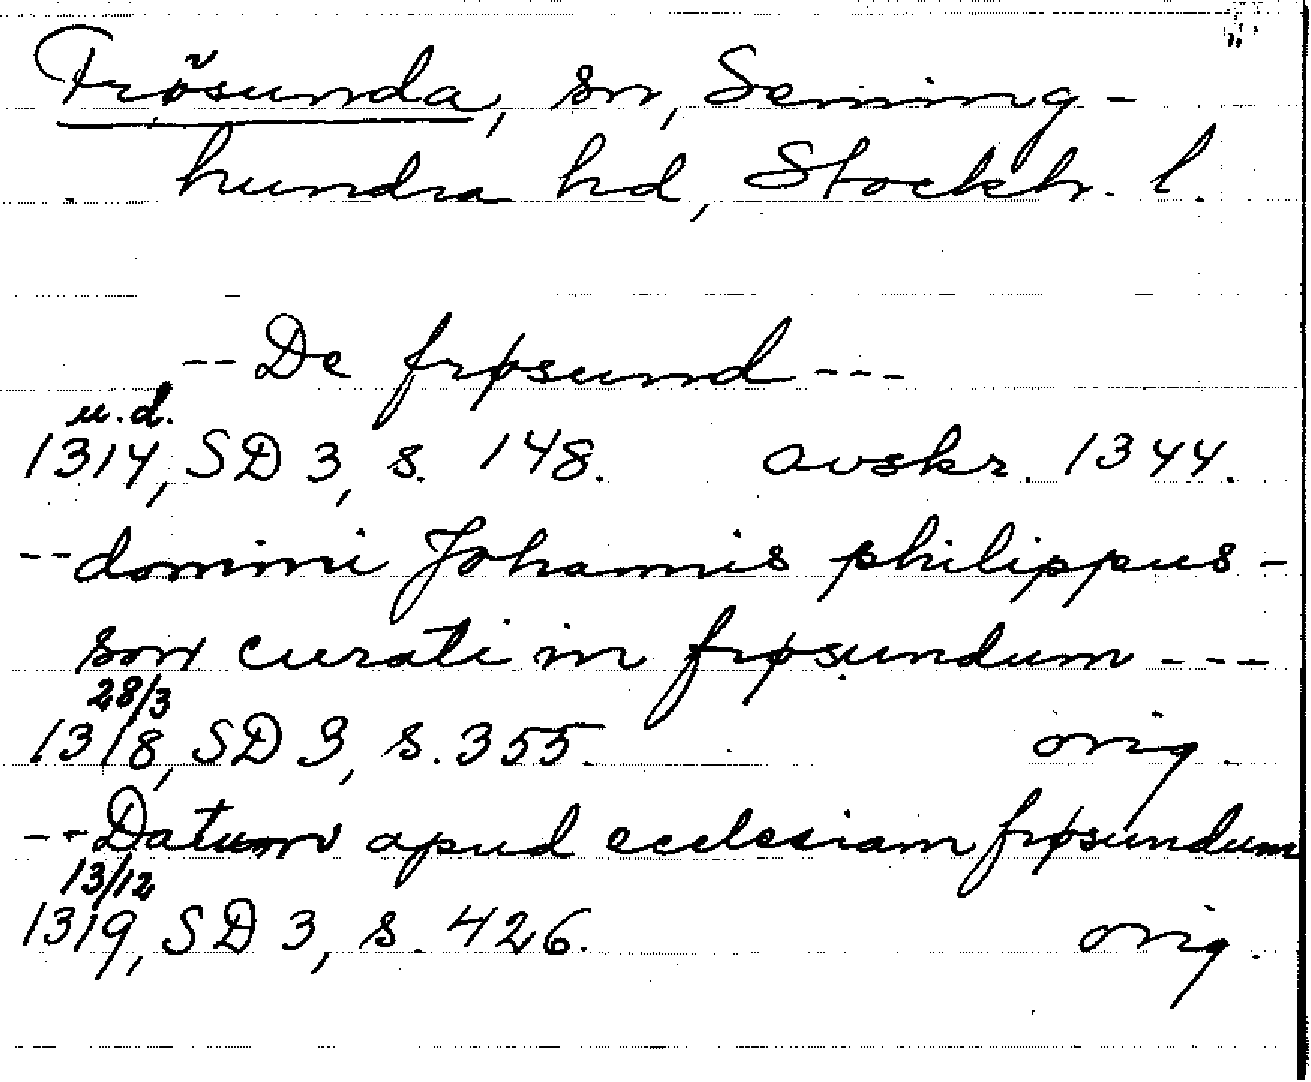 Frösunda, sn, Seming-
hundra hd, Stockh. l.
--De frøsund---
u.d.
1314, SD 3, s. 148. avskr. 1344.
--domini Johannis philippus-
son curati in frøsundum---
28/3
1318, SD 3, s. 355. orig.
--Datum apud ecclesiam frøsundum
13/12
1319, SD 3, s. 426. orig.